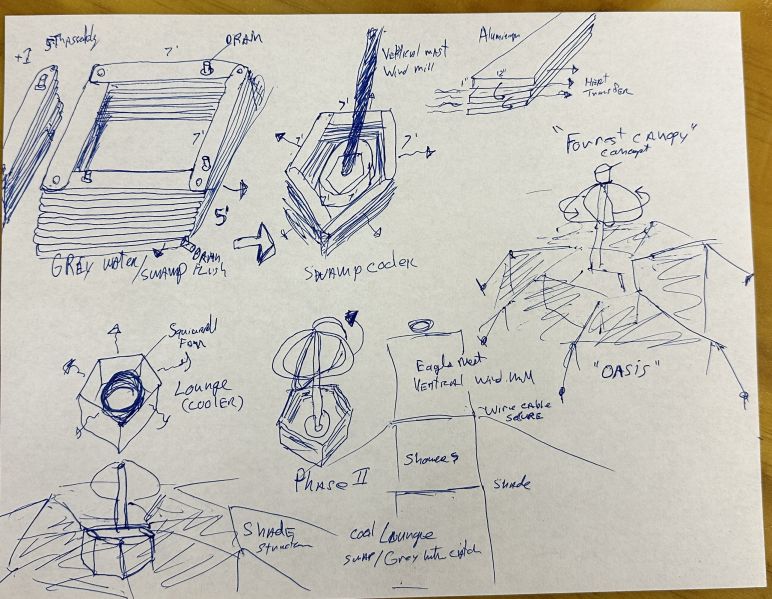 +1
7'
DRAM
7'
5'
GREY water
/swamp
Vertical mast
Wind mill
7'
7'
SWAMP cooler
Aluminum
1"
12"
HEAT
Transfer
"Forrest CANOPY"
Concept
"OASIS"
Squirrell
Fan
Lounge
(COOLER)
PHASE II
Eagle Nest
VERTICAL Wind Mill
Wire CABLE
SECURE
Showers
Shade
SHADE
Structure
COOL LOUNGE
SWAP/Grey